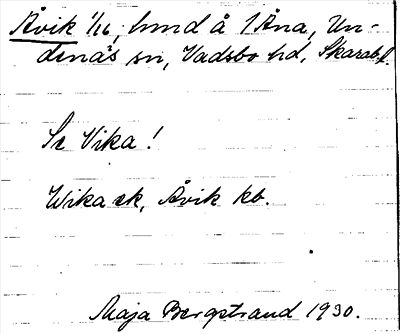 Åvik 1/16, hmd å 1 Åna, Un-
denäs sn, Vadsbo hd, Skarab. l.
Se Vika!
Wika ek, Åvik kb.
Maja Bergstrand 1930.